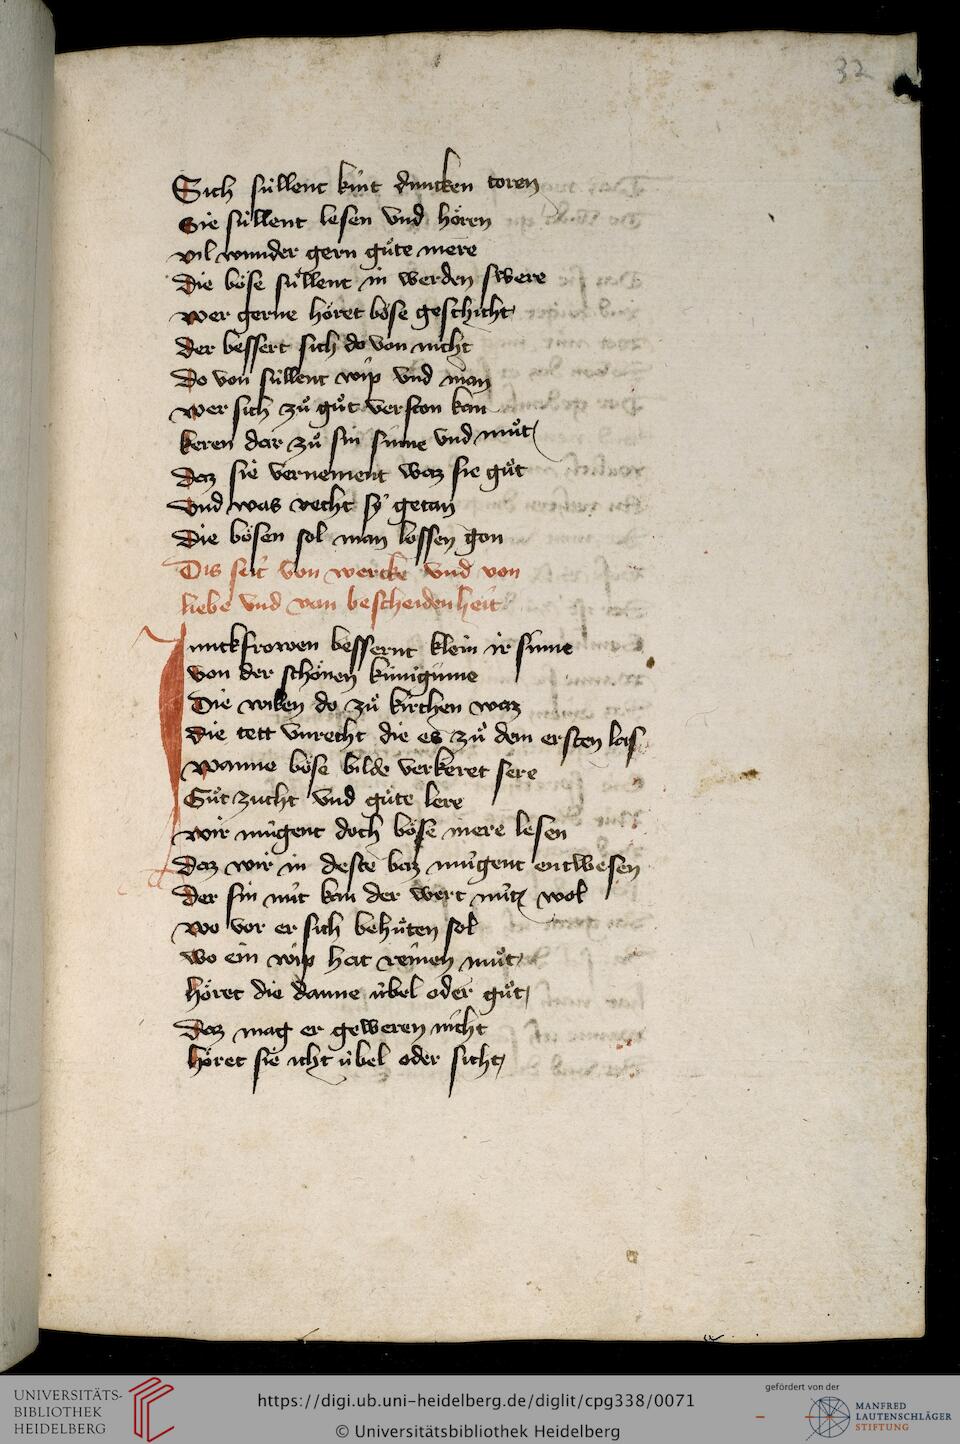 32
Sich süllent kint duncken toren
Sie süllent lesen vnd hören
vil wunder gern guͦte mere
Die böse süllent in werden swere
wer gerne höret böse geschicht
der bessert sich do von nicht
Do von süllent wip vnd man
wer sich zuͦ guͦt verston kan
keren dar zuͦ sin sinne vnd muͦt
Daz sie vernement waz sie guͦt
vnd was recht sy getan
Die bösen sol man lossen gon
Dis seit von wercke vnd von
liebe vnd van bescheidenheit
Junckfrowen bessernt klein ir sinne
von der schönen künigunne
Die wilen do zuͦ kirchen waz
die tett vnrecht die es zuͦ dem ersten las
wanne böse bilde verkeret sere
Guͦt zucht vnd guͦte lere
wir mügent doch böse mere lesen
Daz wir in deste baz mügent entwesen
der sin nüt kan der wert nütz wol
wo vor er sich behüten sol
wo ein wip hat reinen muͦt
höret die danne übel oder guͦt
Daz mag er geweren nicht
höret sie icht übel oder sicht
UNIVERSITÄTS-
BIBLIOTHEK
HEIDELBERG
https://digi.ub.uni-heidelberg.de/diglit/cpg338/0071
© Universitätsbibliothek Heidelberg
gefördert von der
MANFRED
LAUTENSCHLÄGER
STIFTUNG